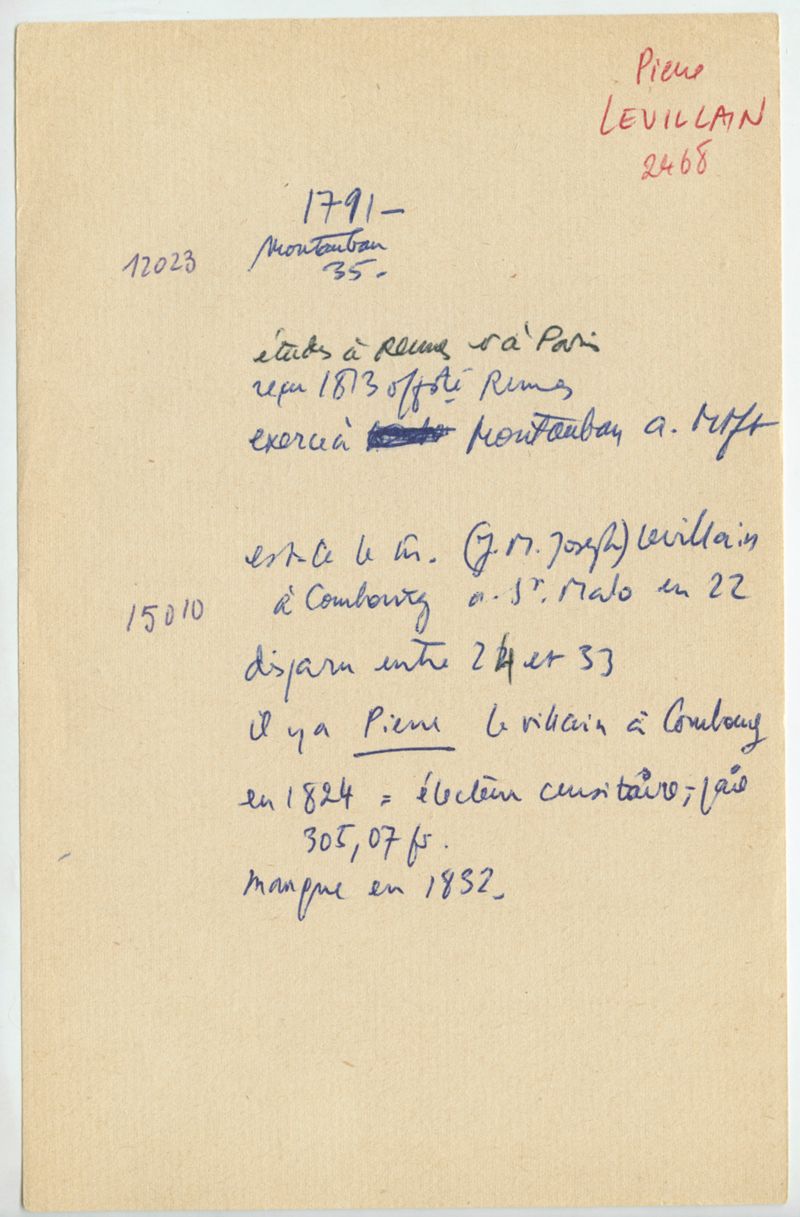 Pierre
LEVILLAIN
2468
1791-
12023 Montauban
35.
études à Rennes et à Paris
reçu 1813 off. sté Rennes
exerce à Montauban a. Mft
est-ce le (J.M. Joseph) Levillain
à Combourg a. St. Malo en 22
15010
disparu entre 24 et 33
il y a Pierre Levillain à Combourg
en 1824 = électeur censitaire, paie
305,07 fr.
manque en 1832.